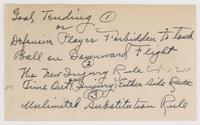 Goal Tending ①
or
Defensive Player Forbidden to touch
Ball on Downward Flight
②
The New Injury Rule
Time Out Injury Either Side
③
Unlimited Substitution Rule